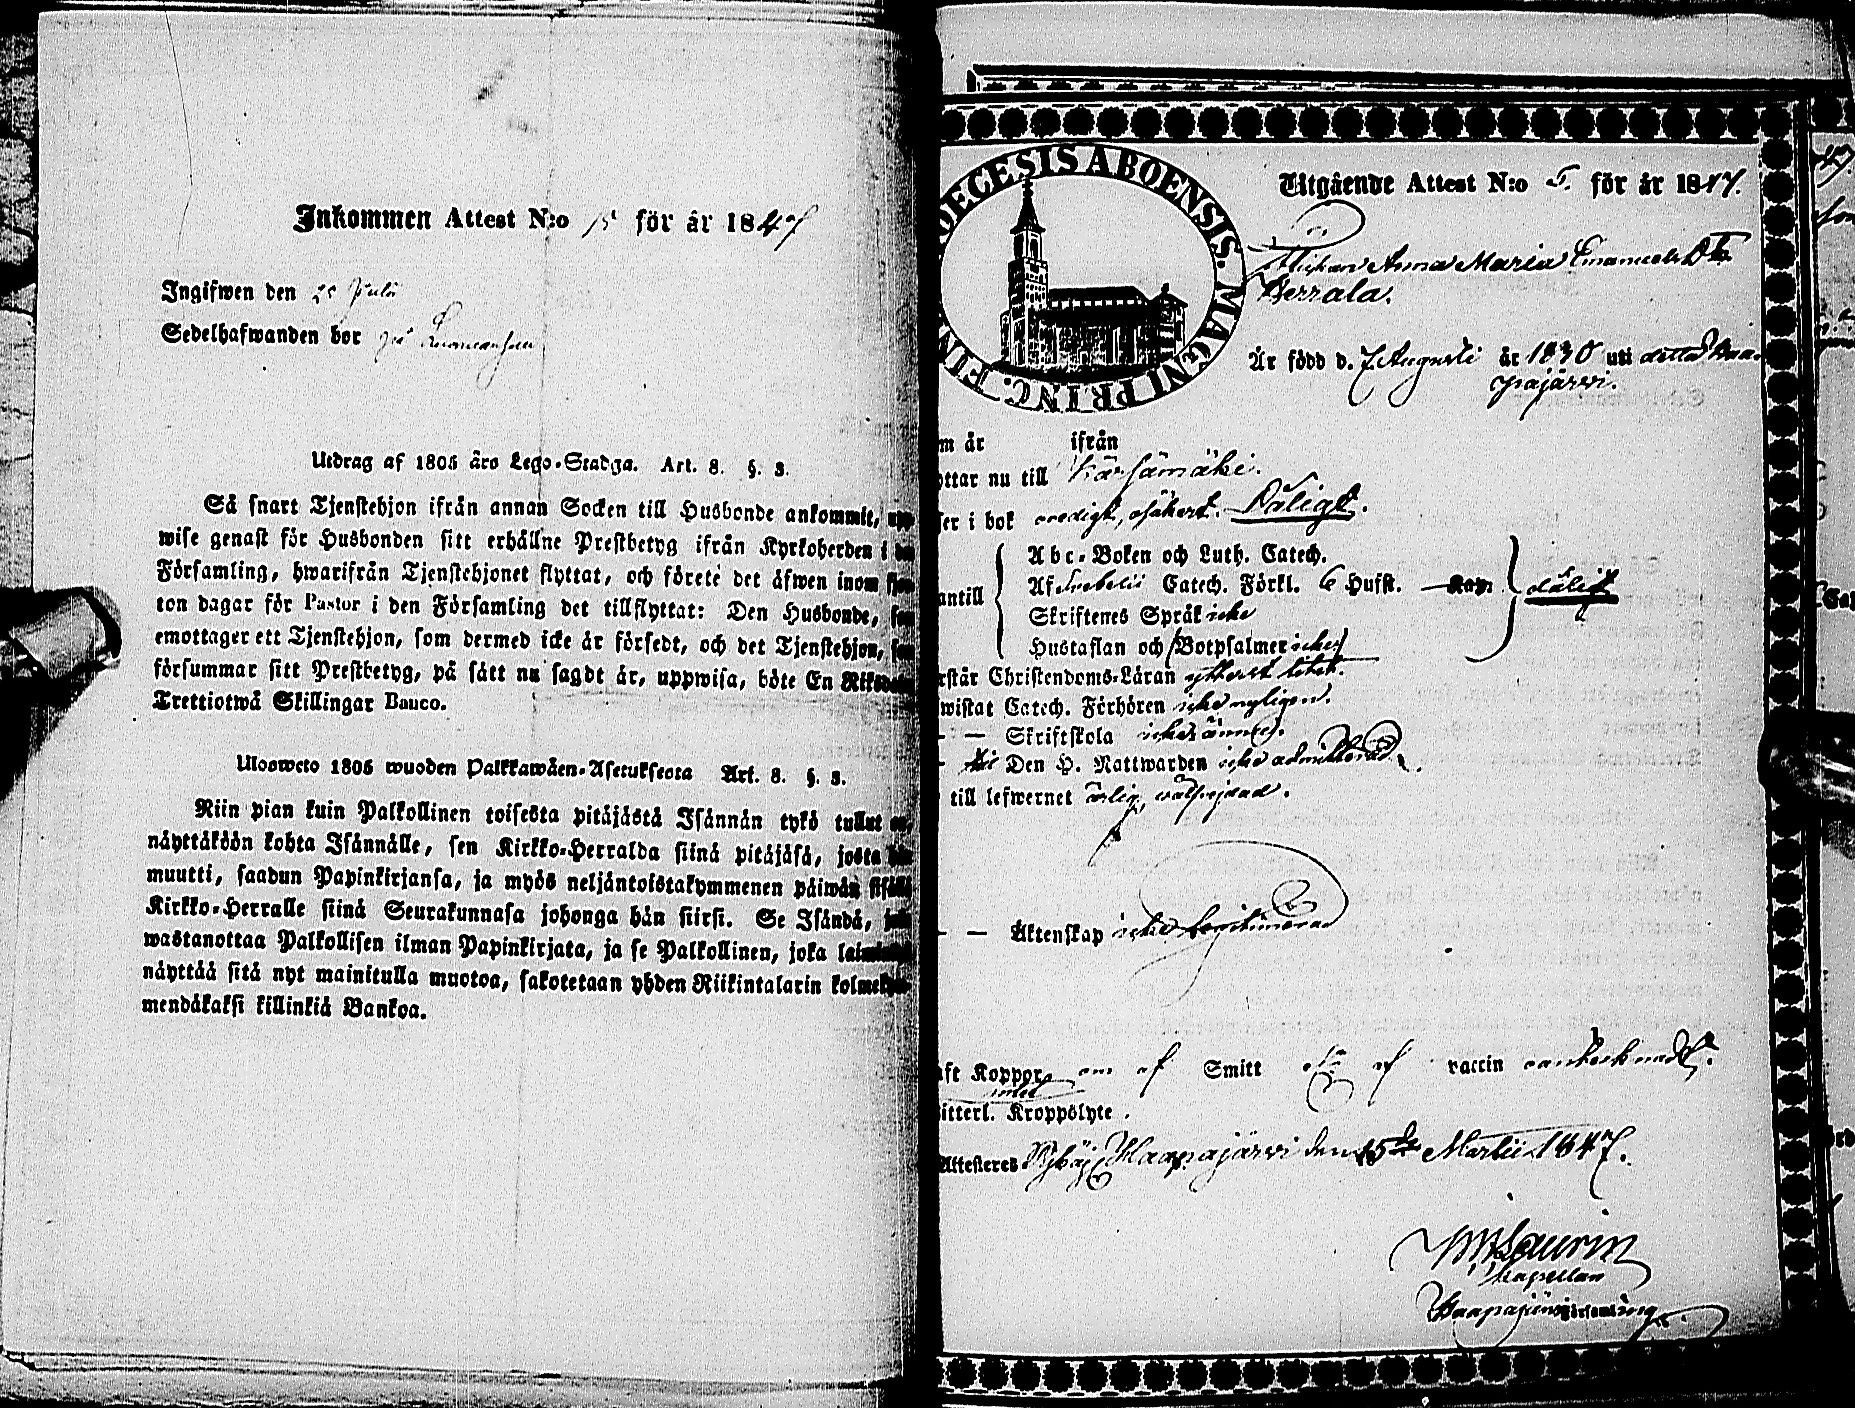 Inkommen Attest N:o 15 för år 1847
Ingifwen den 25 Julii
Sedelhafwanden bor på
Utdrag af 1805 års Lego-Stadga. Art. 8. §. 3.
Så snart Tjenstehjon ifrån annan Socken till Husbonde ankommit, upp
wise genast för Husbonden sitt erhållne Prestbetyg ifrån Kyrkoherden i den
Församling, hwarifrån Tjenstehjonet flyttat, och förete det äfwen inom fjor
ton dagar för Pastor i den Församling det tillflyttat: Den Husbonde, som
emottager ett Tjenstehjon, som dermed icke är försedt, och det Tjenstehjon, som
försummar sitt Prestbetyg, på sätt nu sagdt är, uppwisa, böte En Riksdaler
Trettiotwå Skillingar Banco.
Uloswéto 1805 wuoden Palkkawäen-Asetuksesta Art. 8. §. 3.
Niin pian kuin Palkollinen toisesta pitäjästä Isännän tykö tullut on,
näyttäköön kohta Isännälle, sen Kirkko-Herralda siinä pitäjäsä, josta hän
muutti, saadun Papinkirjansa, ja myös neljäntoistakymmenen päiwän sisällä
Kirkko-Herralle siinä Seurakunnasa johonga hän siirsi. Se Isändä, joka
wastanottaa Palkollisen ilman Papinkirjata, ja se Palkollinen, joka laimin
näyttää sitä nyt mainitulla muotoa, sakotetaan yhden Riikintalarin kolmekym
mendäkaksi killinkiä Bankoa.
DIOECESIS ABOENSIS. MAGNI PRINC. FIN
Utgående Attest N:o 5. för år 1847.
Flickan Anna Maria Emanuels Dr
Kerrala.
Är född d. 7 Augusti år 1830 uti detta Haa-
pajärvi.
m år ifrån
yttar nu till Kärsämäki.
ser i bok oredigt, osäkert. Dåligt.
antill
Abc-Boken och Luth. Catech.
Af Svebelii Catech. Förkl. 6 Hufst. Kap.
dåligt
Skriftenes Språk icke
Hustaflan och Botpsalmer icke
rstår Christendoms-Läran ytterst litet.
wistat Catech. Förhören icke nyligen.
— Skriftskola icke ännu.
till Den H. Nattwarden icke admitterad.
till lefwernet ärlig, välfrejdad.
— — Äktenskap icke legitimerad
aft Koppor om af Smitt el. af vaccin oantecknadt.
intet
itterl. Kroppslyte.
Attesteres Pyhäj. Haapajärvi den 15de Martii 1847.
Laurin
Kapellan
Haapajärvi församling.